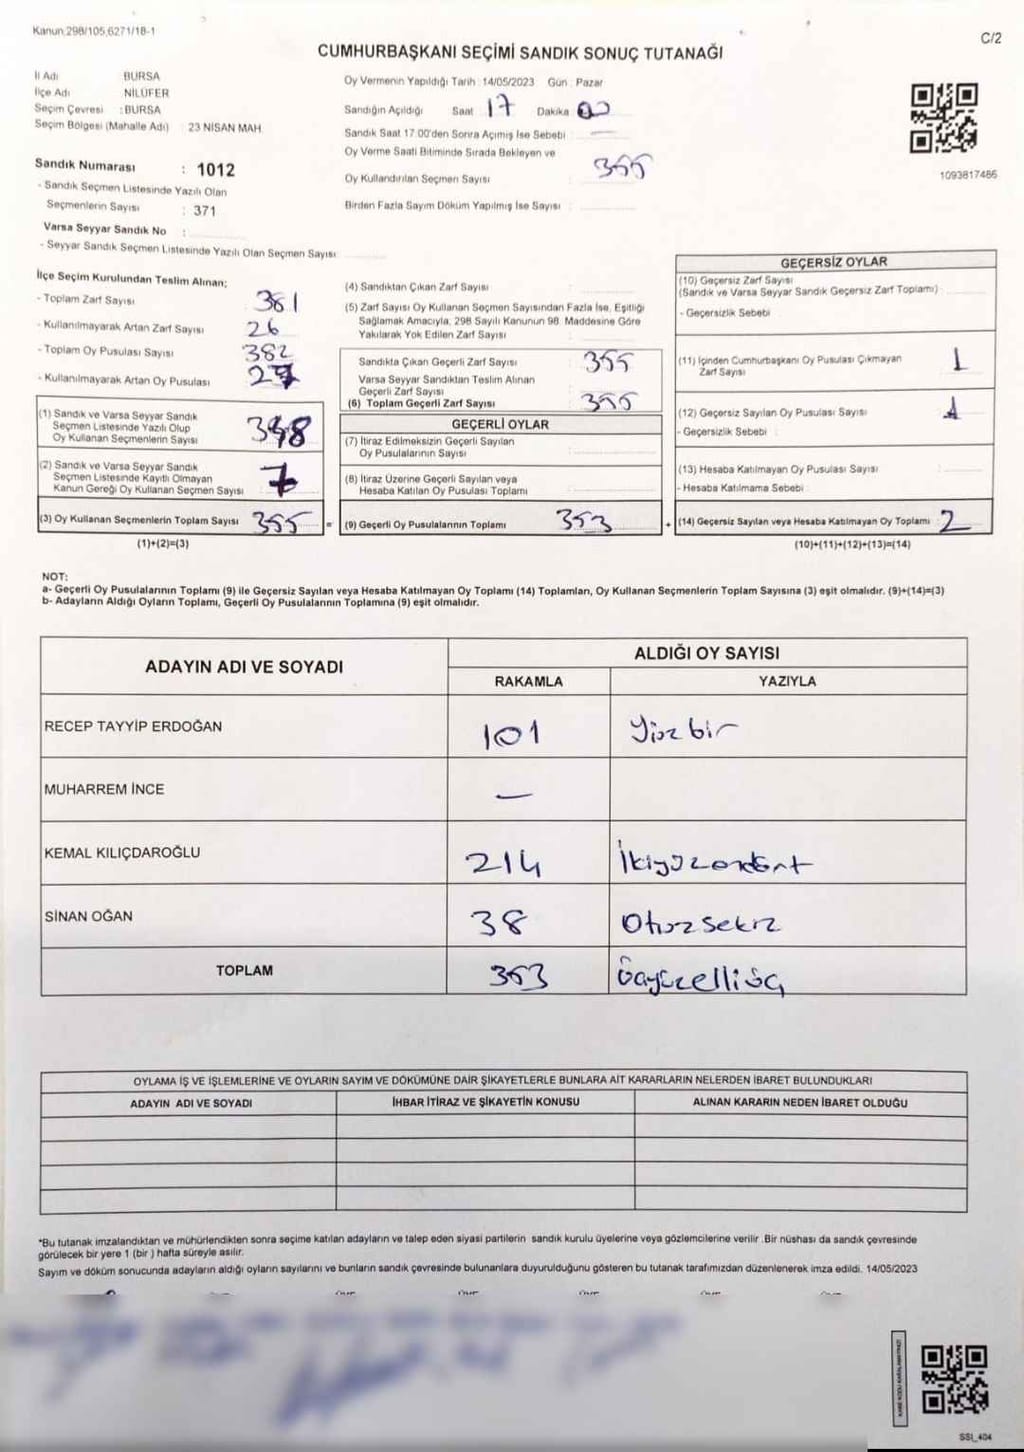 Kanun:298/105,6271/18-1
C/2
CUMHURBAŞKANI SEÇİMİ SANDIK SONUÇ TUTANAĞI
İl Adı BURSA
İlçe Adı NİLÜFER
Seçim Çevresi : BURSA
Seçim Bölgesi (Mahalle Adı) : 23 NİSAN MAH.
Sandık Numarası : 1012
- Sandık Seçmen Listesinde Yazılı Olan
Seçmenlerin Sayısı : 371
Varsa Seyyar Sandık No :
- Seyyar Sandık Seçmen Listesinde Yazılı Olan Seçmen Sayısı:
Oy Vermenin Yapıldığı Tarih : 14/05/2023 Gün : Pazar
Sandığın Açıldığı Saat 17 Dakika 00
Sandık Saat 17:00'den Sonra Açımış İse Sebebi : —
Oy Verme Saati Bitiminde Sırada Bekleyen ve
Oy Kullandırılan Seçmen Sayısı : 355
Birden Fazla Sayım Döküm Yapılmış İse Sayısı :
1093817486
İlçe Seçim Kurulundan Teslim Alınan;
- Toplam Zarf Sayısı 381
- Kullanılmayarak Artan Zarf Sayısı 26
- Toplam Oy Pusulası Sayısı 382
- Kullanılmayarak Artan Oy Pusulası 27
(1) Sandık ve Varsa Seyyar Sandık
Seçmen Listesinde Yazılı Olup
Oy Kullanan Seçmenlerin Sayısı 348
(2) Sandık ve Varsa Seyyar Sandık
Seçmen Listesinde Kayıtlı Olmayan
Kanun Gereği Oy Kullanan Seçmen Sayısı 7
(3) Oy Kullanan Seçmenlerin Toplam Sayısı 355 =
(1)+(2)=(3)
(4) Sandıktan Çıkan Zarf Sayısı :
(5) Zarf Sayısı Oy Kullanan Seçmen Sayısından Fazla İse, Eşitliği
Sağlamak Amacıyla, 298 Sayılı Kanunun 98. Maddesine Göre
Yakılarak Yok Edilen Zarf Sayısı :
Sandıkta Çıkan Geçerli Zarf Sayısı : 355
Varsa Seyyar Sandıktan Teslim Alınan
Geçerli Zarf Sayısı :
(6) Toplam Geçerli Zarf Sayısı : 355
GEÇERLİ OYLAR
(7) İtiraz Edilmeksizin Geçerli Sayılan
Oy Pusulalarının Sayısı :
(8) İtiraz Üzerine Geçerli Sayılan veya
Hesaba Katılan Oy Pusulası Toplamı :
(9) Geçerli Oy Pusulalarının Toplamı 353 +
GEÇERSİZ OYLAR
(10) Geçersiz Zarf Sayısı
(Sandık ve Varsa Seyyar Sandık Geçersiz Zarf Toplamı) :
- Geçersizlik Sebebi
(11) İçinden Cumhurbaşkanı Oy Pusulası Çıkmayan
Zarf Sayısı 1
(12) Geçersiz Sayılan Oy Pusulası Sayısı 1
- Geçersizlik Sebebi :
(13) Hesaba Katılmayan Oy Pusulası Sayısı
- Hesaba Katılmama Sebebi :
(14) Geçersiz Sayılan veya Hesaba Katılmayan Oy Toplamı : 2
(10)+(11)+(12)+(13)=(14)
NOT:
a- Geçerli Oy Pusulalarının Toplamı (9) ile Geçersiz Sayılan veya Hesaba Katılmayan Oy Toplamı (14) Toplamları, Oy Kullanan Seçmenlerin Toplam Sayısına (3) eşit olmalıdır. (9)+(14)=(3)
b- Adayların Aldığı Oyların Toplamı, Geçerli Oy Pusulalarının Toplamına (9) eşit olmalıdır.
ADAYIN ADI VE SOYADI
ALDIĞI OY SAYISI
RAKAMLA YAZIYLA
RECEP TAYYİP ERDOĞAN 101 Yüzbir
MUHARREM İNCE —
KEMAL KILIÇDAROĞLU 214 İkiyüzondört
SİNAN OĞAN 38 Otuzsekiz
TOPLAM 353 Üçyüzelliüç
OYLAMA İŞ VE İŞLEMLERİNE VE OYLARIN SAYIM VE DÖKÜMÜNE DAİR ŞİKAYETLERLE BUNLARA AİT KARARLARIN NELERDEN İBARET BULUNDUKLARI
ADAYIN ADI VE SOYADI İHBAR İTİRAZ VE ŞİKAYETİN KONUSU ALINAN KARARIN NEDEN İBARET OLDUĞU
*Bu tutanak imzalandıktan ve mühürlendikten sonra seçime katılan adayların ve talep eden siyasi partilerin sandık kurulu üyelerine veya gözlemcilerine verilir .Bir nüshası da sandık çevresinde
görülecek bir yere 1 (bir ) hafta süreyle asılır.
Sayım ve döküm sonucunda adayların aldığı oyların sayılarını ve bunların sandık çevresinde bulunanlara duyurulduğunu gösteren bu tutanak tarafımızdan düzenlenerek imza edildi. 14/05/2023
SSI_404